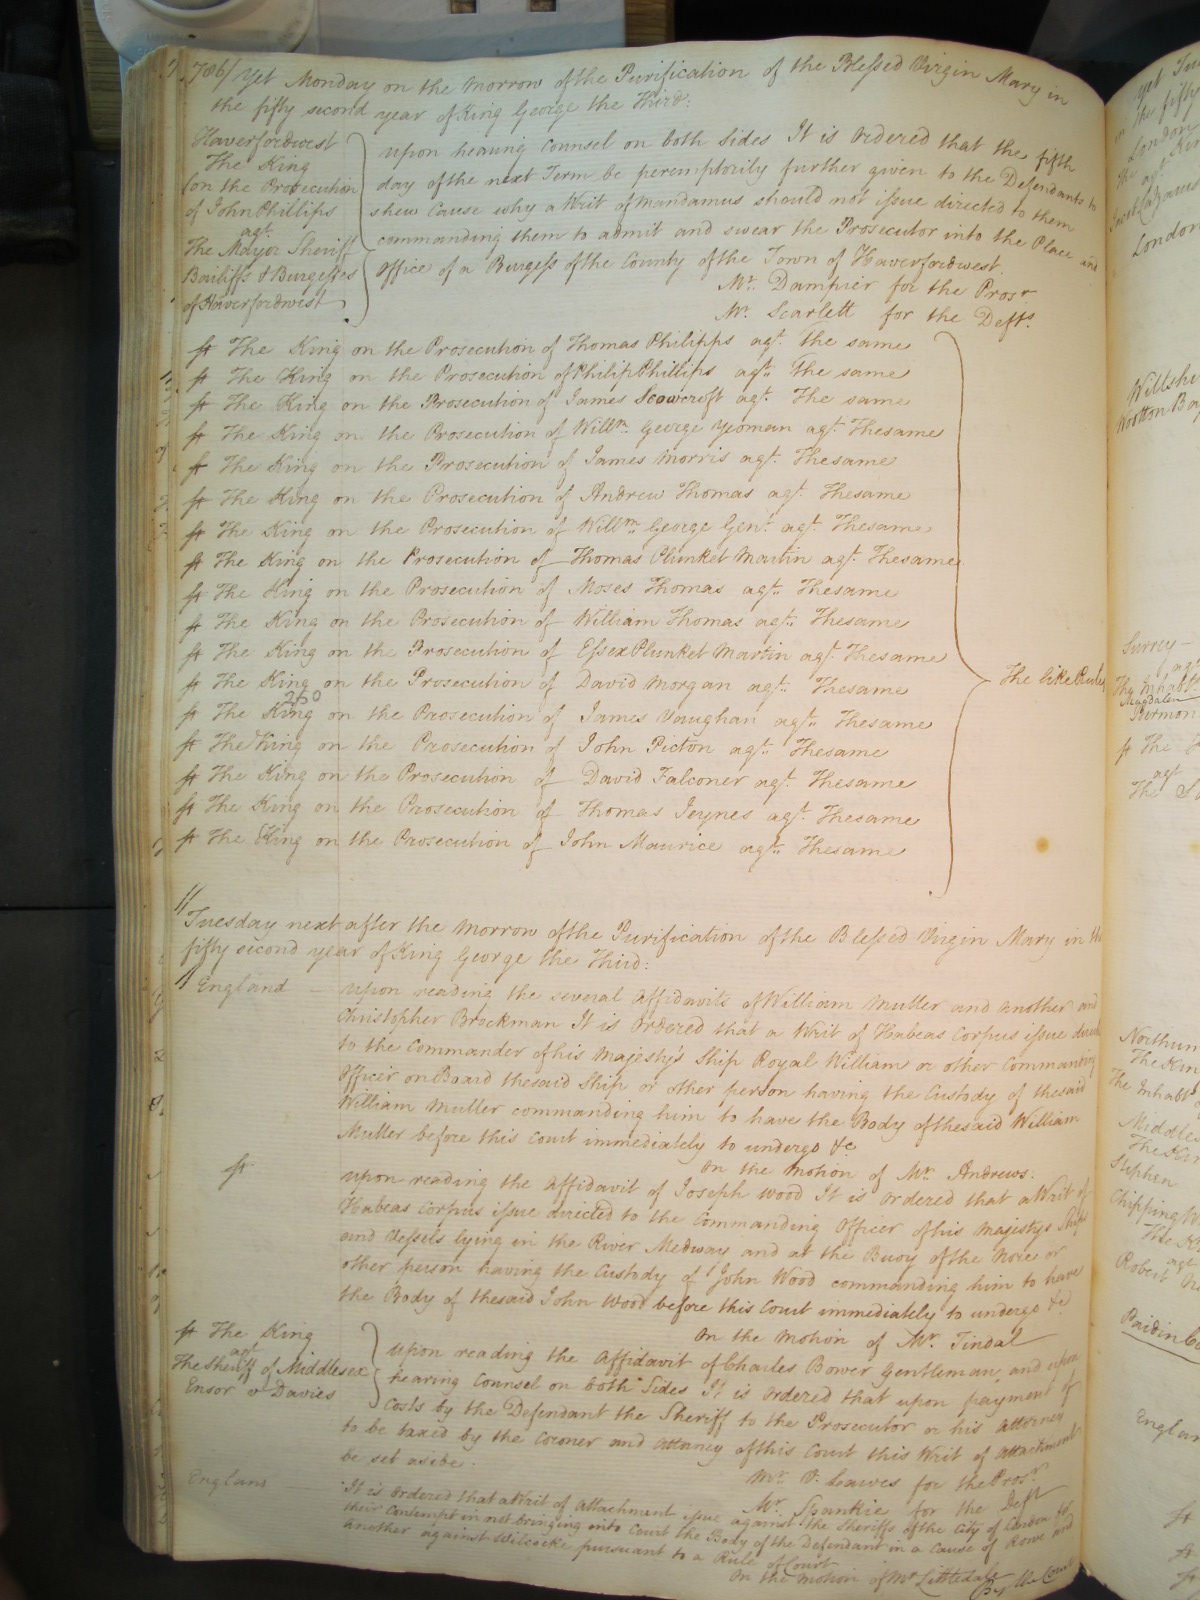 786/ Yet Monday on the Morrow of the Purification of the Blessed Virgin Mary in
the fifty second year of King George the Third:
Haverfordwest
The King
(on the Prosecution
of John Phillips
agt.
The Mayor Sheriff
Bailiffs & Burgesses
of Haverfordwest
upon hearing Counsel on both sides It is Ordered that the fifth
day of the next Term be peremptorily further given to the Defendants to
shew Cause why a Writ of Mandamus should not issue directed to them
commanding them to admit and swear the Prosecutor into the Place and
Office of a Burgess of the County of the Town of Haverfordwest.
Mr. Dampier for the Prosr
Mr. Scarlett for the Defts.
ss The King on the Prosecution of Thomas Philipps agt. the same
ss The King on the Prosecution of Philip Phillips agt. The same
ss The King on the Prosecution of James Scowcroft agt. The same
ss The King on the Prosecution of Willm. George Yeoman agt. The same
ss The King on the Prosecution of James Morris agt. The same
ss The King on the Prosecution of Andrew Thomas agt. The same
ss The King on the Prosecution of Willm. George Gent. agt. The same
ss The King on the Prosecution of Thomas Plunket Martin agt. The same
ss The King on the Prosecution of Moses Thomas agt. The same
ss The King on the Prosecution of William Thomas agt. The same
ss The King on the Prosecution of Essex Plunket Martin agt. The same
ss The King on the Prosecution of David Morgan agt. The same
250
ss The King on the Prosecution of James Vaughan agt. The same
ss The King on the Prosecution of John Picton agt. The same
ss The King on the Prosecution of David Falconer agt. The same
ss The King on the Prosecution of Thomas Jeynes agt. The same
ss The King on the Prosecution of John Maurice agt. The same
The like Rules
Tuesday next after the Morrow of the Purification of the Blessed Virgin Mary in the
fifty second year of King George the Third:
England — upon reading the several Affidavits of William Muller and another and
Christopher Brockman It is Ordered that a Writ of Habeas Corpus issue directed
to the Commander of his Majesty's Ship Royal William or other Commanding
Officer on Board the said Ship or other person having the Custody of the said
William Muller commanding him to have the Body of the said William
Muller before this Court immediately to undergo &c
On the Motion of Mr. Andrews.
ss upon reading the Affidavit of Joseph Wood It is Ordered that a Writ of
Habeas Corpus issue directed to the Commanding Officer of his Majestys Ships
and Vessels lying in the River Medway and at the Buoy of the Nore or
other person having the Custody of John Wood commanding him to have
the Body of the said John Wood before this Court immediately to undergo &c
On the Motion of Mr. Tindal
ss The King
agt
The Sheriff of Middlesex
Ensor v Davies
upon reading the Affidavit of Charles Bower Gentleman and upon
hearing Counsel on both Sides It is Ordered that upon payment of
Costs by the Defendant the Sheriff to the Prosecutor or his Attorney
to be taxed by the Coroner and Attorney of this Court this Writ of Attachment
be set aside.
Mr. V. Lawes for the Prosr.
Mr. Spankie for the Deft
England It is Ordered that a Writ of Attachment issue against the Sheriffs of the City of London for
their Contempt in not bringing into Court the Body of the Defendant in a Cause of Rowe and
another against Wilcocke pursuant to a Rule of Court
On the Motion of Mr Littledale
By the Court
Yet
the fifth
London
agt
London
Wiltshi
Wootton
Surrey
agt
Magdalen
ss The
agt
The
Northum
The Kin
The Inhabts
Middles
The Kin
Stephen
Chipping
agt
Robert
England
ss
ss
ss